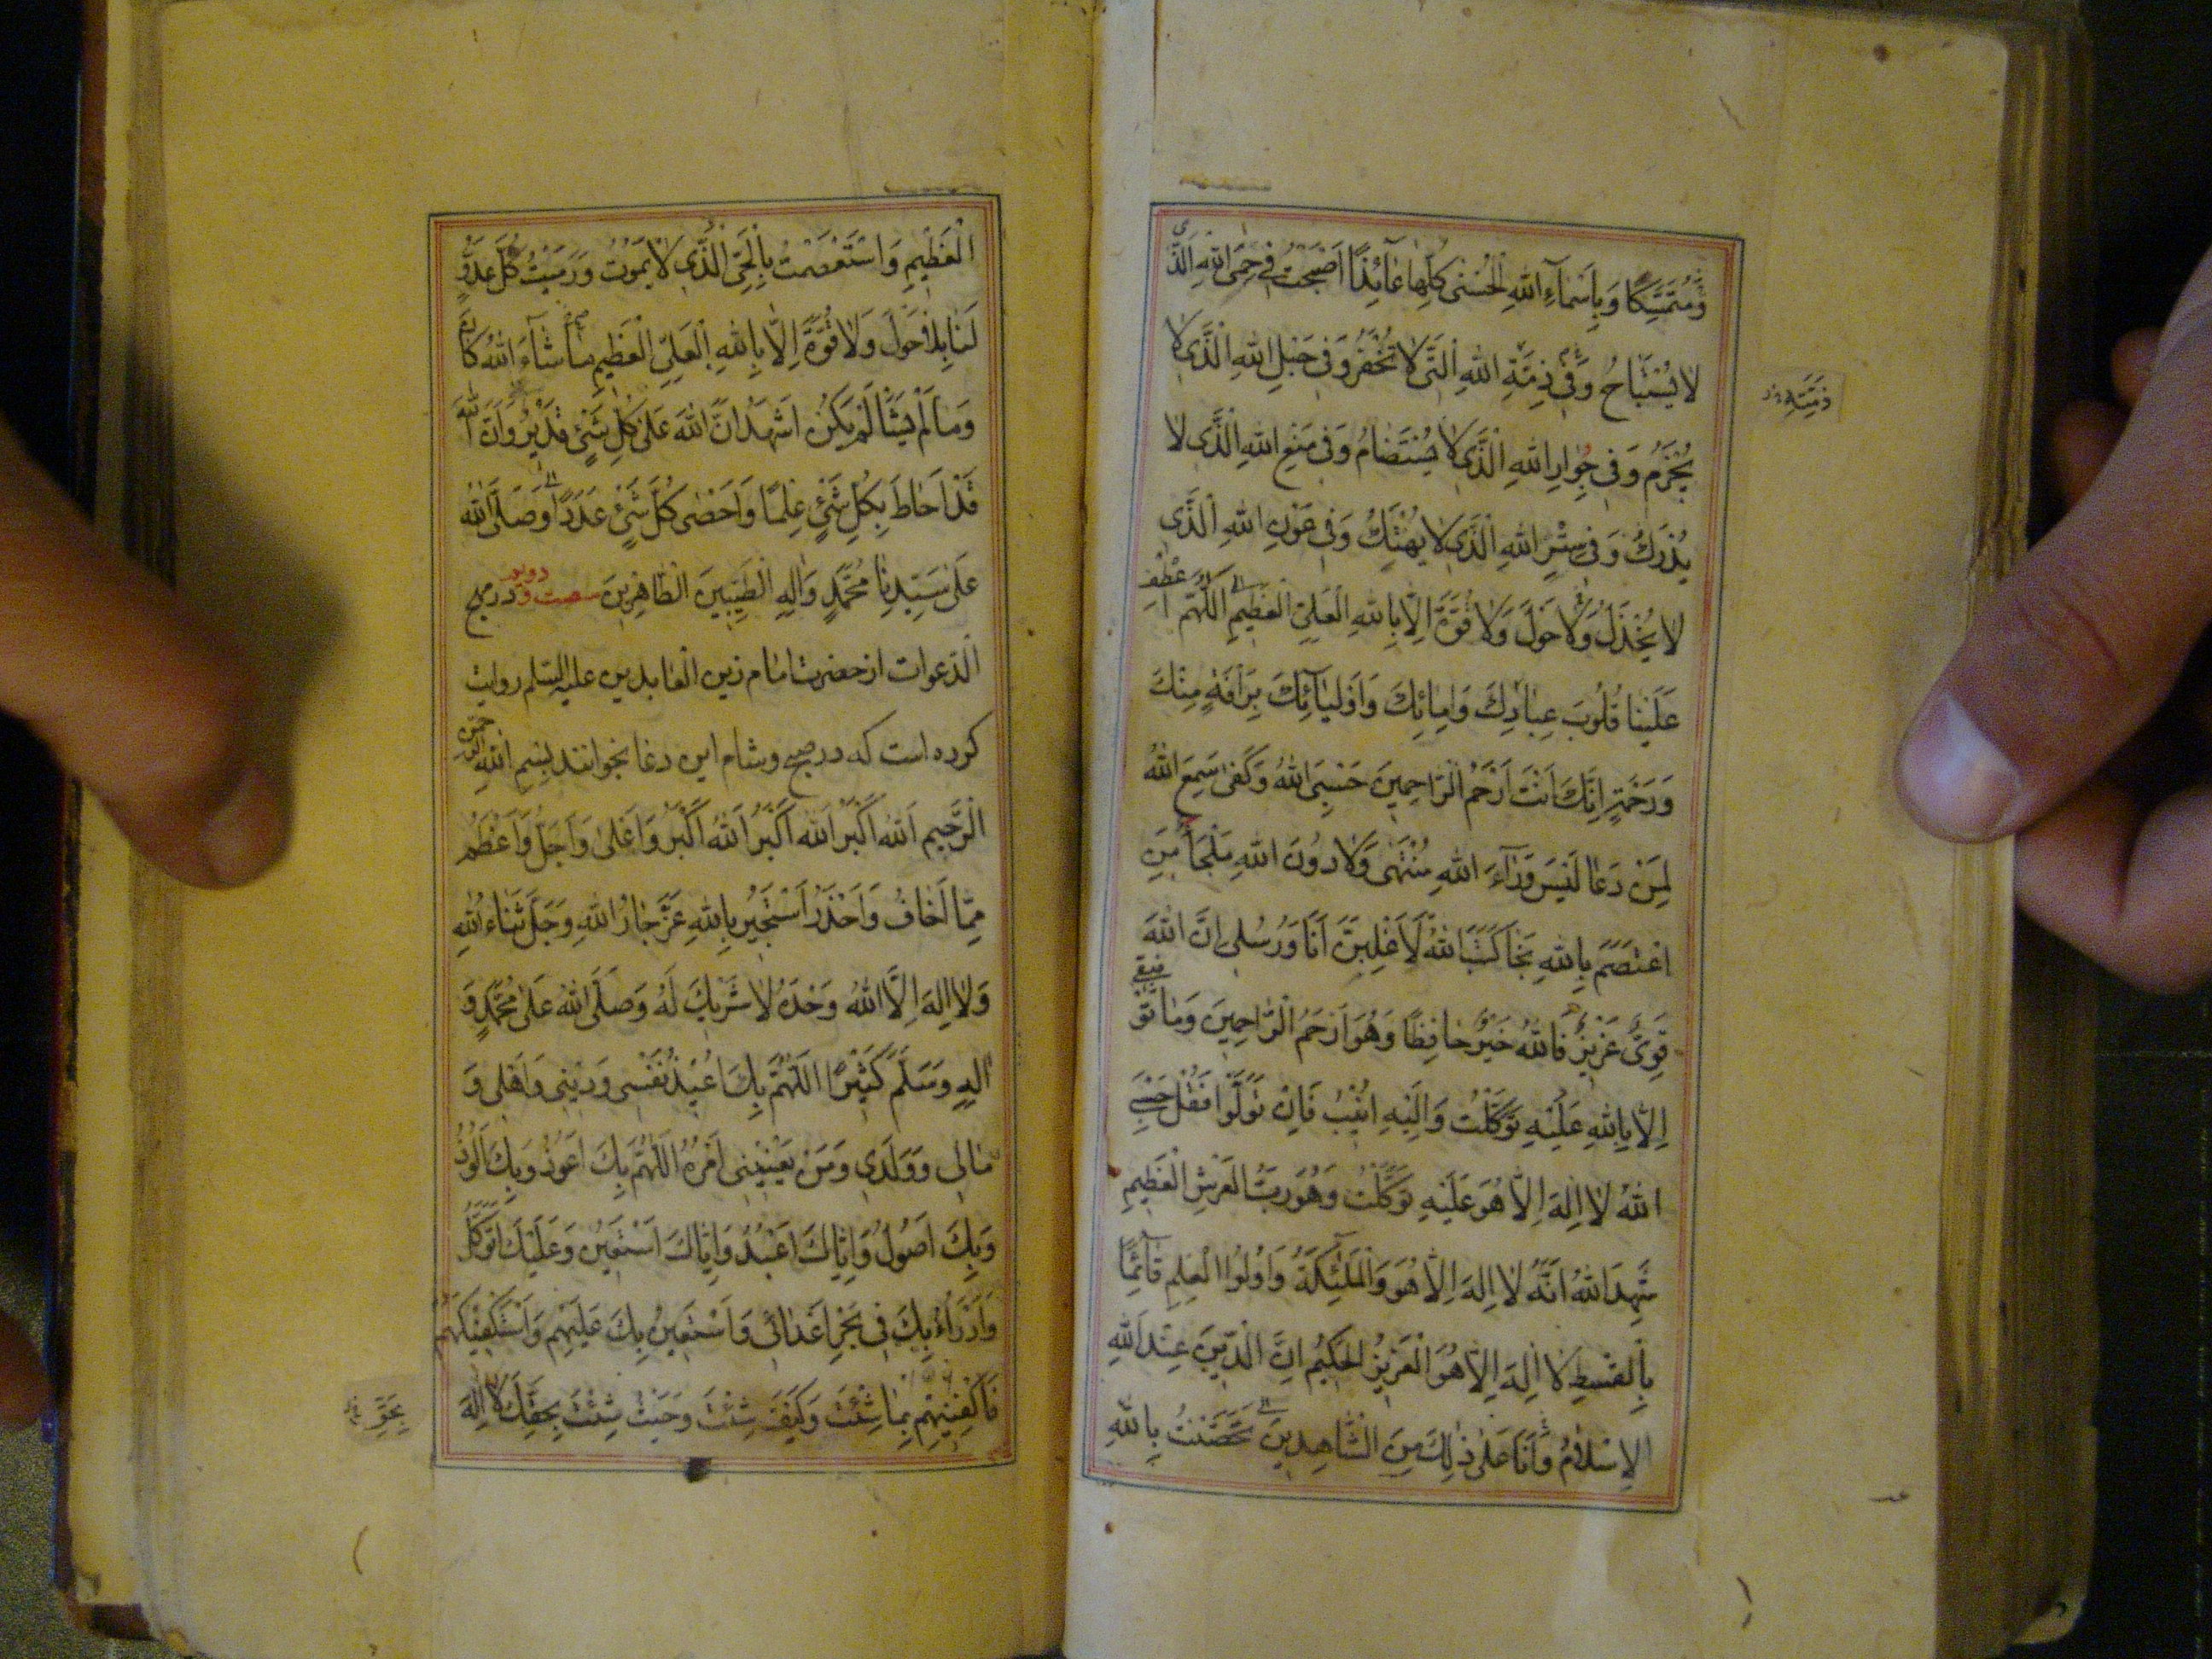 وَمُتَمَسِّكًا وَبِاَسْمآءِ اللهِ الْحُسْنى كُلِّها عٰآئِذًا اَصْبَحْتُ فى حِمَى اللهِ الَّذى
لا يُسْتَبٰاحُ وَفى ذِمَّةِ اللهِ الَّتى لا تُخْفَرُ وَفى حَبْلِ اللهِ الَّذى لا
ذِمَّتِهِ
يُجْزَمُ وَفى جِوٰارِ اللهِ الَّذى لا يُسْتَضٰامُ وَفى مَنْعِ اللهِ الَّذى لا
يُدْرَكُ وَفى سِتْرِ اللهِ الَّذى لا يُهْتَكُ وَفى عَوْنِ اللهِ الَّذى
لا يُخْذَلُ وَلا حَوْلَ وَلا قُوَّةَ اِلاّ بِاللهِ الْعَلِىِّ الْعَظيمِ اَللّهُمَّ اعْطِفْ
عَلَيْنا قُلُوبَ عِبٰادِكَ وَاِمٰائِكَ وَاَوْلِيٰآئِكَ بِرَاْفَةٍ مِنْكَ
وَرَحْمَةٍ اِنَّكَ اَنْتَ اَرْحَمُ الرّٰاحِمينَ حَسْبِىَ اللهُ وَكَفى سَمِعَ اللهُ
لِمَنْ دَعٰا لَيْسَ وَرٰآءَ اللهِ مُنْتَهى وَلا دُونَ اللهِ مَلْجَأٌ مَنِ
اعْتَصَمَ بِاللهِ نَجٰا كَتَبَ اللهُ لَاَغْلِبَنَّ اَنَا وَرُسُلى اِنَّ اللهَ
قَوِىٌّ عَزيزٌ فَاللهُ خَيْرٌ حٰافِظًا وَهُوَ اَرْحَمُ الرّٰاحِمينَ وَمٰا تَوْفيقى
اِلاّ بِاللهِ عَلَيْهِ تَوَكَّلْتُ وَاِلَيْهِ اُنيبُ فَاِنْ تَوَلَّوْا فَقُلْ حَسْبِىَ
اللهُ لا اِلهَ اِلاّ هُوَ عَلَيْهِ تَوَكَّلْتُ وَهُوَ رَبُّ الْعَرْشِ الْعَظيمِ
شَهِدَ اللهُ اَنَّهُ لا اِلهَ اِلاّ هُوَ وَالْمَلٰئِكَةُ وَاُولُوا الْعِلْمِ قٰآئِمًا
بِالْقِسْطِ لا اِلهَ اِلاّ هُوَ الْعَزيزُ الْحَكيمُ اِنَّ الدّينَ عِنْدَ اللهِ
الاِسْلامُ وَاَنَا عَلى ذلِكَ مِنَ الشّٰاهِدينَ تَحَصَّنْتُ بِاللهِ
الْعَظيمِ وَاسْتَعْصَمْتُ بِالْحَىِّ الَّذى لا يَمُوتُ وَرَمَيْتُ كُلَّ عَدُوٍّ
لَنٰا بِلا حَوْلَ وَلا قُوَّةَ اِلاّ بِاللهِ الْعَلِىِّ الْعَظيمِ مٰا شٰآءَ اللهُ كٰانَ
وَمٰا لَمْ يَشَأْ لَمْ يَكُنْ اَشْهَدُ اَنَّ اللهَ عَلى كُلِّ شَىْءٍ قَديرٌ وَاَنَّ اللهَ
قَدْ اَحٰاطَ بِكُلِّ شَىْءٍ عِلْمًا وَاَحْصى كُلَّ شَىْءٍ عَدَدًا وَصَلَّى اللهُ
عَلى سَيِّدِنٰا مُحَمَّدٍ وَالِهِ الطَّيِّبينَ الطّٰاهِرينَ در مهج
الدّعوات از حضرت امام زين العابدين عليه السّلم روايت
كرده است كه در صبح و شام اين دعا بخوانند بِسْمِ اللهِ الرَّحْمنِ
الرَّحيمِ اَللهُ اَكْبَرُ اَللهُ اَكْبَرُ اَللهُ اَكْبَرُ وَاَعْلى وَاَجَلُّ وَاَعْظَمُ
مِمّٰا اَخٰافُ وَاَحْذَرُ اَسْتَجيرُ بِاللهِ عَزَّ جٰارُ اللهِ وَجَلَّ ثَنٰاءُ اللهِ
وَلا اِلهَ اِلاَّ اللهُ وَحْدَهُ لا شَريكَ لَهُ وَصَلَّى اللهُ عَلى مُحَمَّدٍ وَ
الِهِ وَسَلَّمَ كَثيرًا اَللّهُمَّ بِكَ اُعيذُ نَفْسى وَدينى وَاَهْلى وَ
مٰالى وَوَلَدى وَمَنْ يَعْنينى اَمْرُهُ اَللّهُمَّ بِكَ اَعُوذُ وَبِكَ اَلُوذُ
وَبِكَ اَصُولُ وَاِيّٰاكَ اَعْبُدُ وَاِيّٰاكَ اَسْتَعينُ وَعَلَيْكَ اَتَوَكَّلُ
وَاَدْرَاُ بِكَ فى نَحْرِ اَعْدٰائى وَاَسْتَعينُ بِكَ عَلَيْهِمْ وَاَسْتَكْفيكَهُمْ
فَاكْفِنيهِمْ بِمٰا شِئْتَ وَكَيْفَ شِئْتَ وَحَيْثُ شِئْتَ بِحَقِّكَ لا اِلهَ
بِحَقِّ